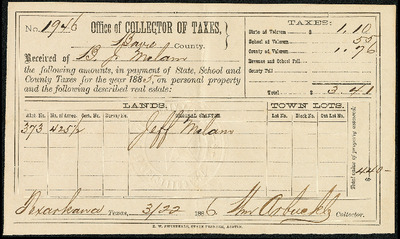 No. 1946
Office of COLLECTOR OF TAXES,
County.
Received of B. J. Melam
the following amounts, in payment of State, School and
County Taxes for the year 1885, on personal property
and the following described real estate:
TAXES:
State ad Valorem $ 1.10
School ad Valorem 55
County ad Valorem 1.76
Revenue and School Poll
County Poll
Total $ 3.41
LANDS.
TOWN LOTS.
Abst. No. No. of Acres. Cert. No. Survey No. ORIGINAL GRANTEE
Lot No. Block No. Out Lot No.
Total value of property assessed:
373 425½ Jeff Milam
440
Texarkana Texas, 3/22 1886 Wm Arbuckle Collector.